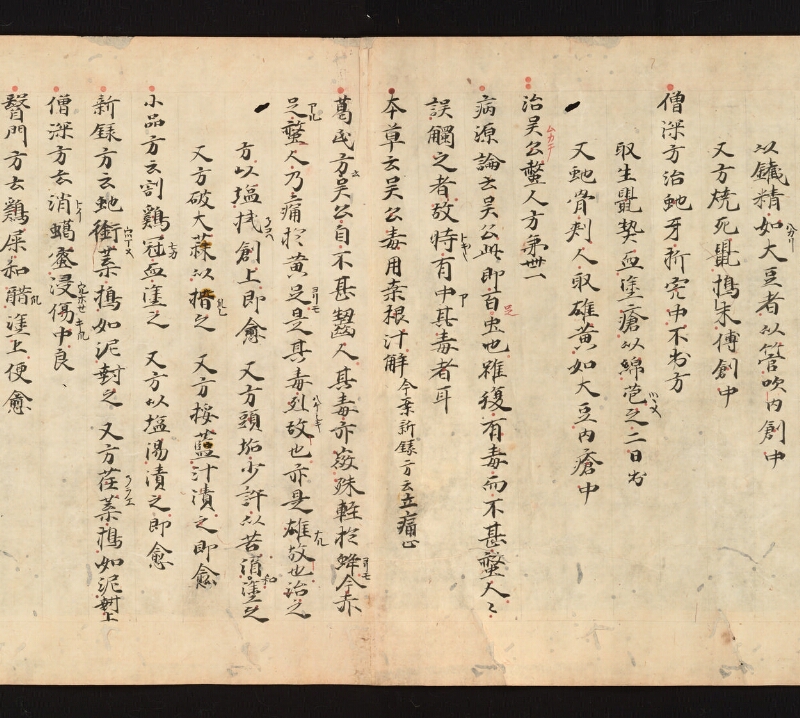 以鐵精如大豆者以管吹内創中
又方燒死鼠擣末傅創中
僧深方治虵牙折完中不出方
取生鼠熱血塗瘡以綿苞之二日出
又虵骨刾人取雄黄如大豆内瘡中
治吴公螫人方第卌一
病源論云吴公此即百虫也雖復有毒而不甚螫人人
誤觸之者故時有中其毒者耳
本草云吴公毒用桒根汁解 今案新録方云立痛止
葛氏方云吴公自不甚齧人其毒亦微殊軽於蜂今赤
足螫人乃痛於黄足是其毒烈故也亦是雄故也治之
方以塩拭創上即愈 又方頭垢少許以苦酒和塗之
又方破大蒜以揩之 又方挼藍汁漬之即愈
小品方云割鷄冠血塗之 又方以塩湯漬之即愈
新録方云虵銜葉擣如泥封之 又方荏葉擣如泥封上
僧深方云消蝎蜜浸傷中良
醫門方云鷄屎和醋塗上便愈